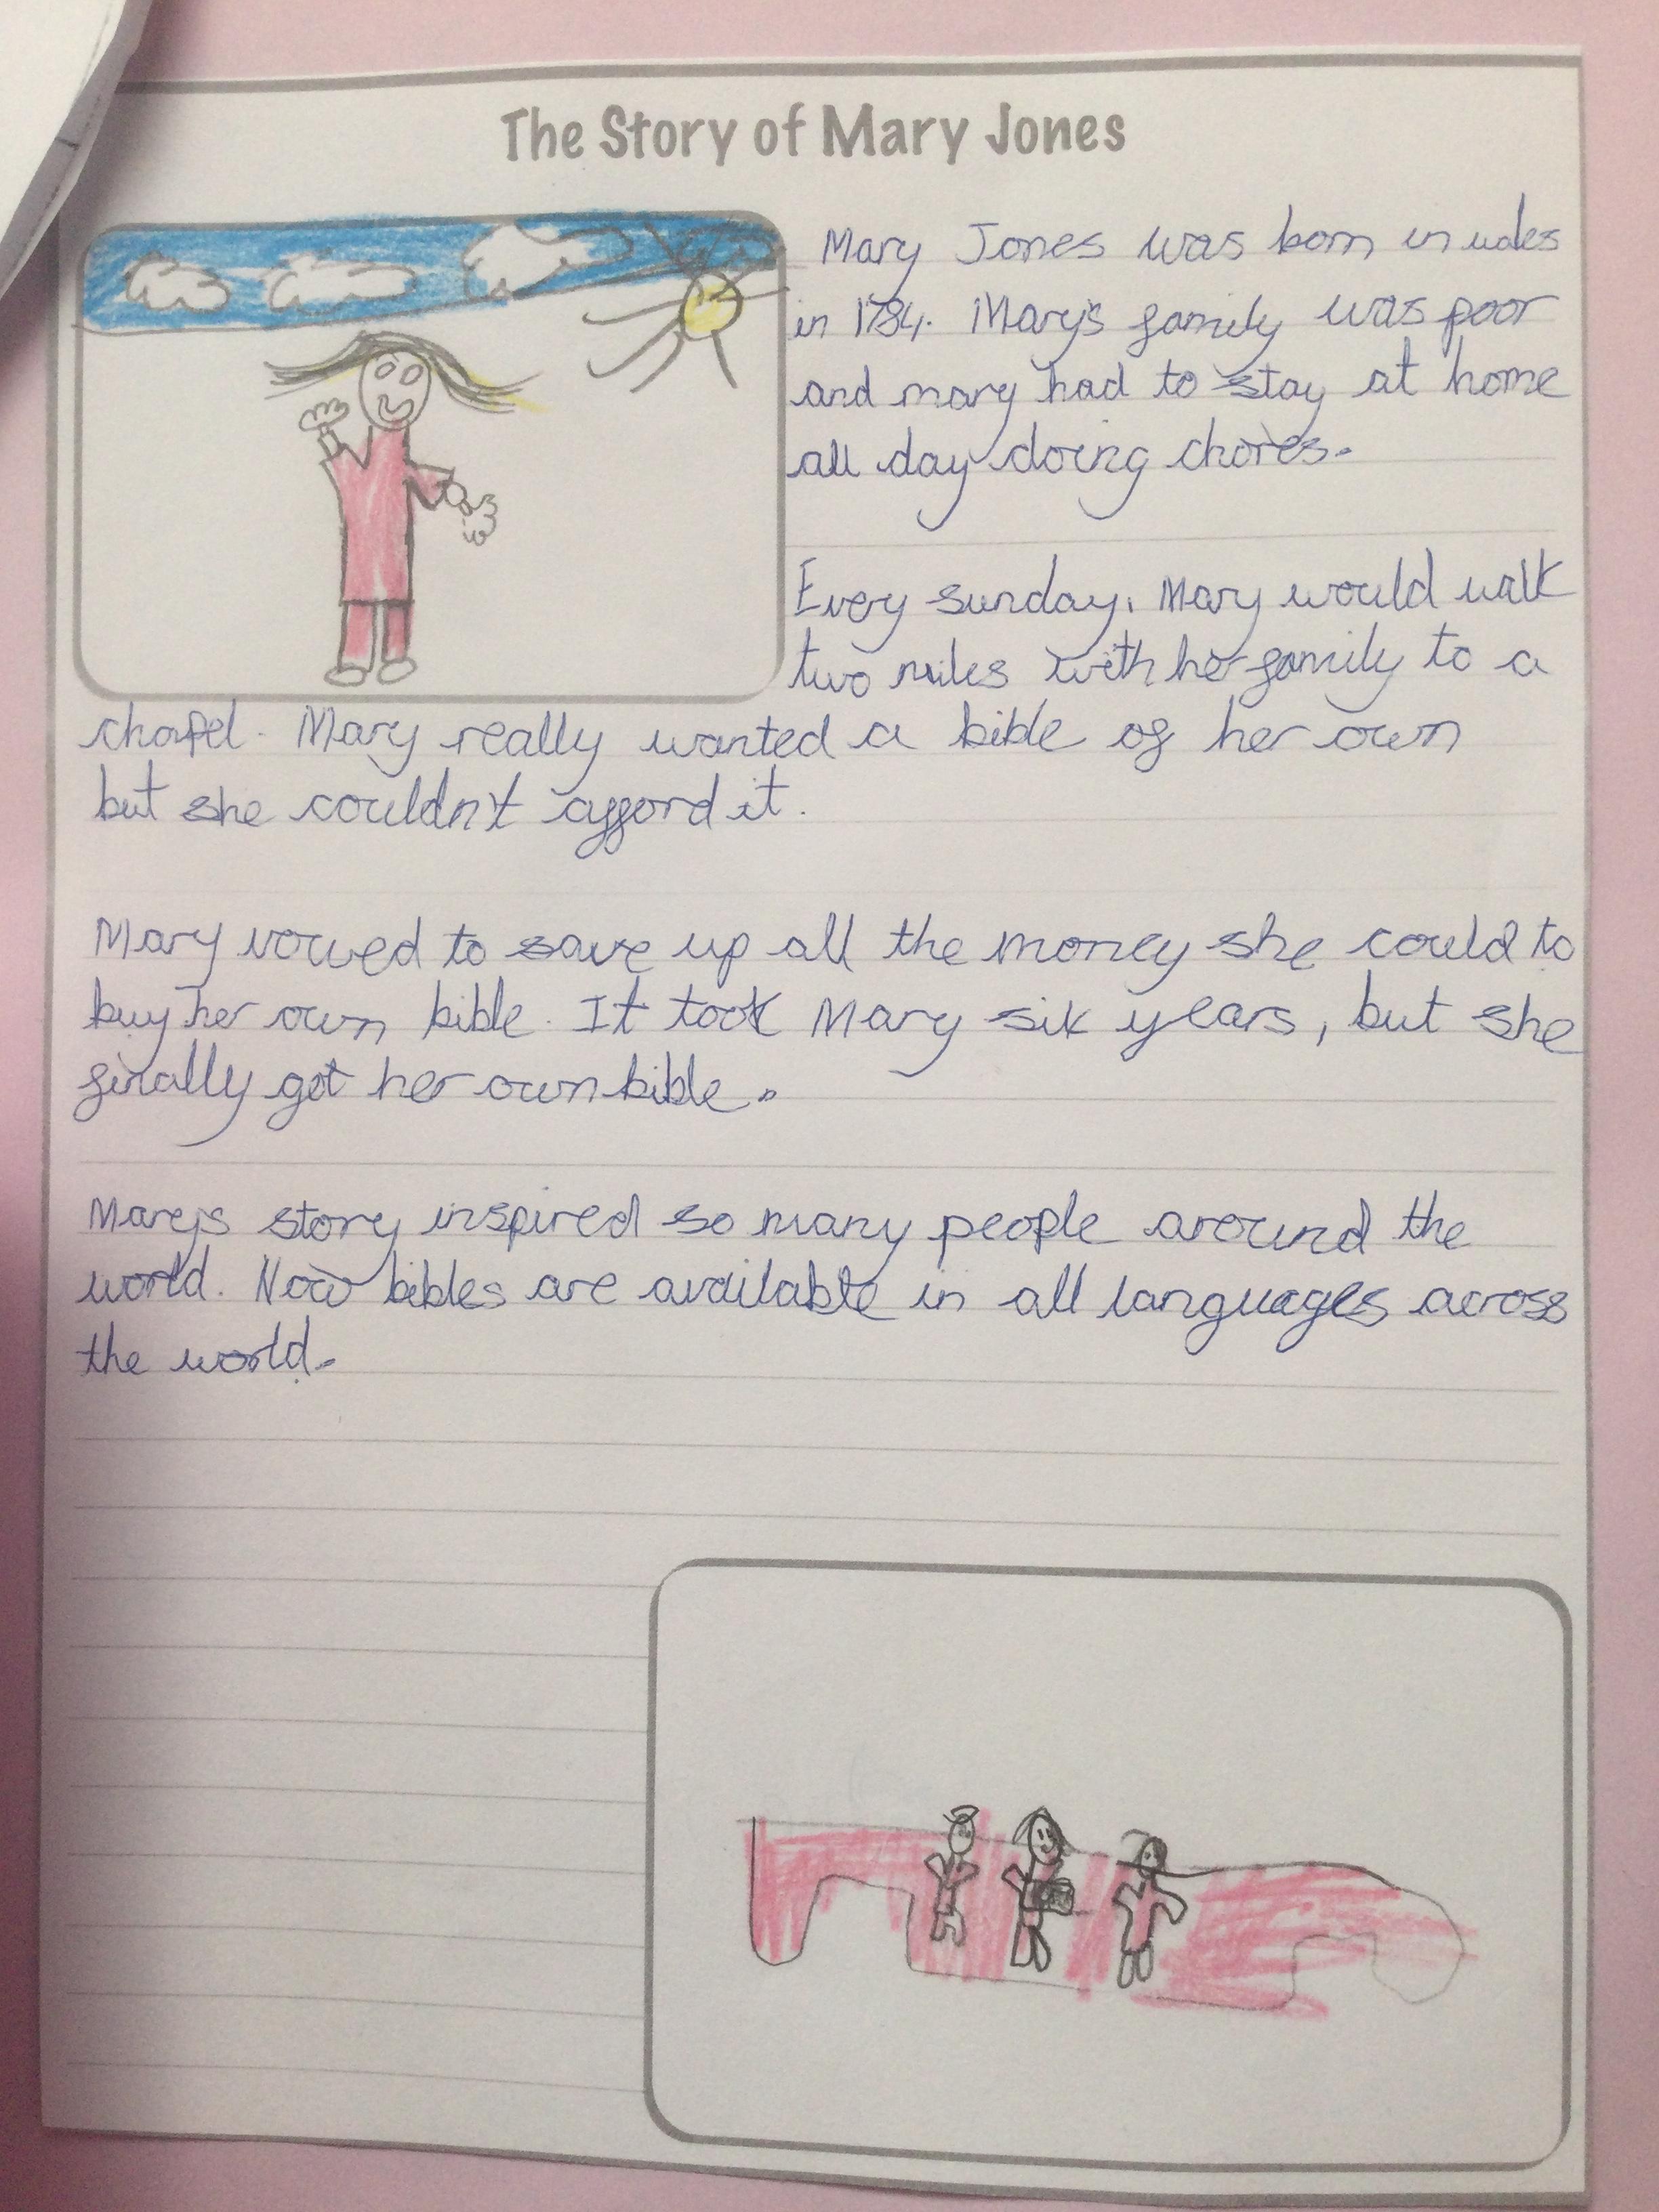 The Story of Mary Jones
Mary Jones was born in wales
in 1784. Mary's family was poor
and mary had to stay at home
all day doing chores.
Every sunday, Mary would walk
two miles with her family to a
chapel. Mary really wanted a bible of her own
but she couldn't afford it.
Mary vowed to save up all the money she could to
buy her own bible. It took Mary six years, but she
finally got her own bible.
Mary's story inspired so many people around the
world. Now bibles are available in all languages across
the world.